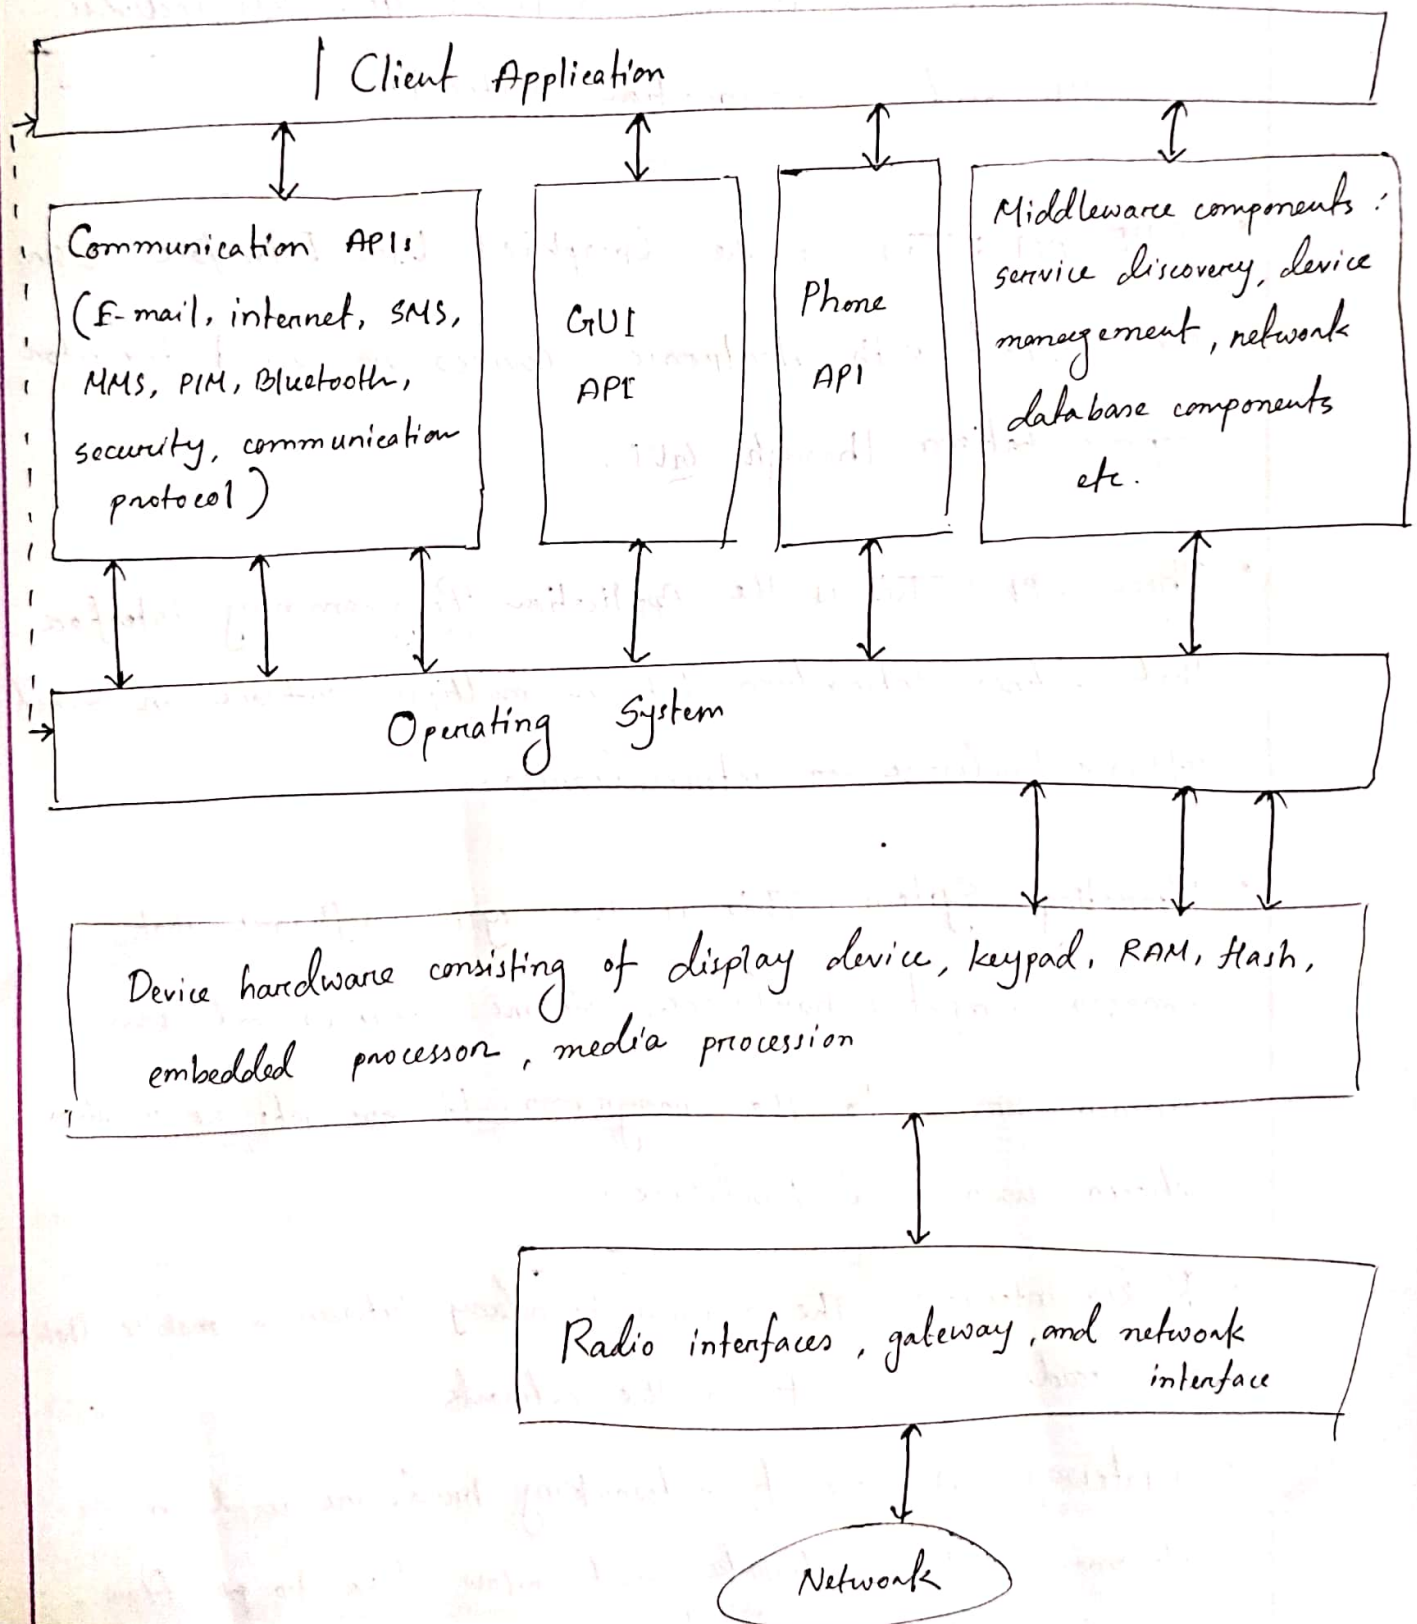 Client Application
Communication APIs
(E-mail, internet, SMS,
MMS, PIM, Bluetooth,
security, communication
protocol)
GUI
API
Phone
API
Middleware components :
service discovery, device
management, network
database components
etc.
Operating System
Device hardware consisting of display device, keypad, RAM, flash,
embedded processor, media procession
Radio interfaces, gateway, and network
interface
Network